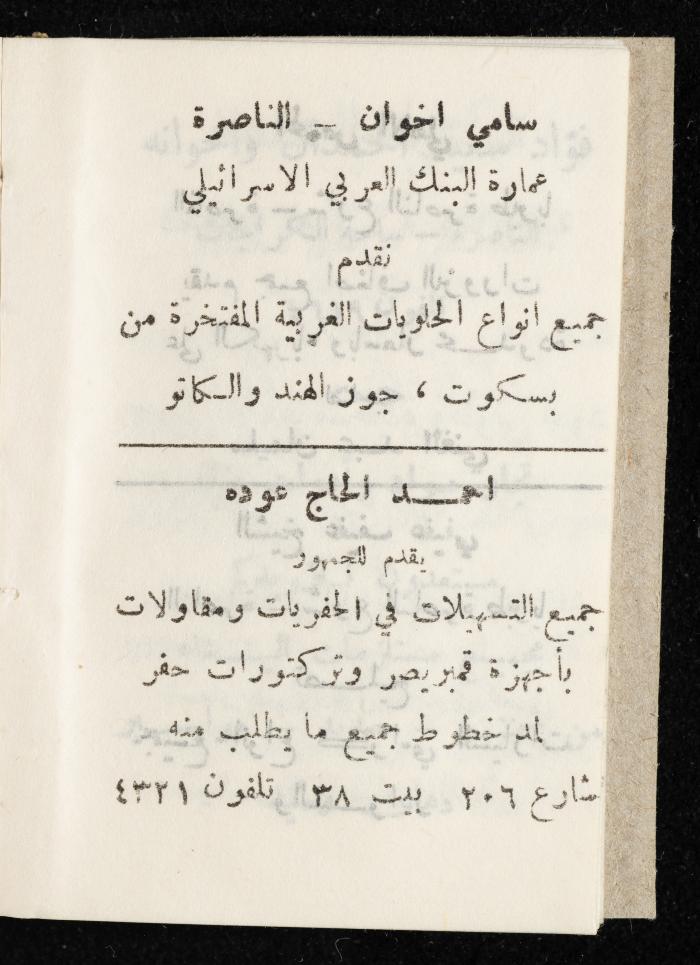 سامي اخوان — الناصرة
عمارة البنك العربي الاسرائيلي
نقدم
جميع انواع الحلويات الغربية المفتخرة من
بسكوت ، جوز الهند والكاتو
احمد الحاج عوده
يقدم للجمهور
جميع التسهيلات في الحفريات ومقاولات
بأجهزة قمبريصر وتركتورات حفر
لمد خطوط جميع ما يطلب منه
شارع ٢٠٦ بيت ٣٨ تلفون ٤٣٢١